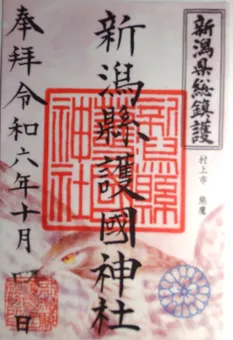 新潟県総鎮護
村上市 熊鷹
新潟縣護國神社
奉拝令和六年十月四日
新潟縣
護國
神社